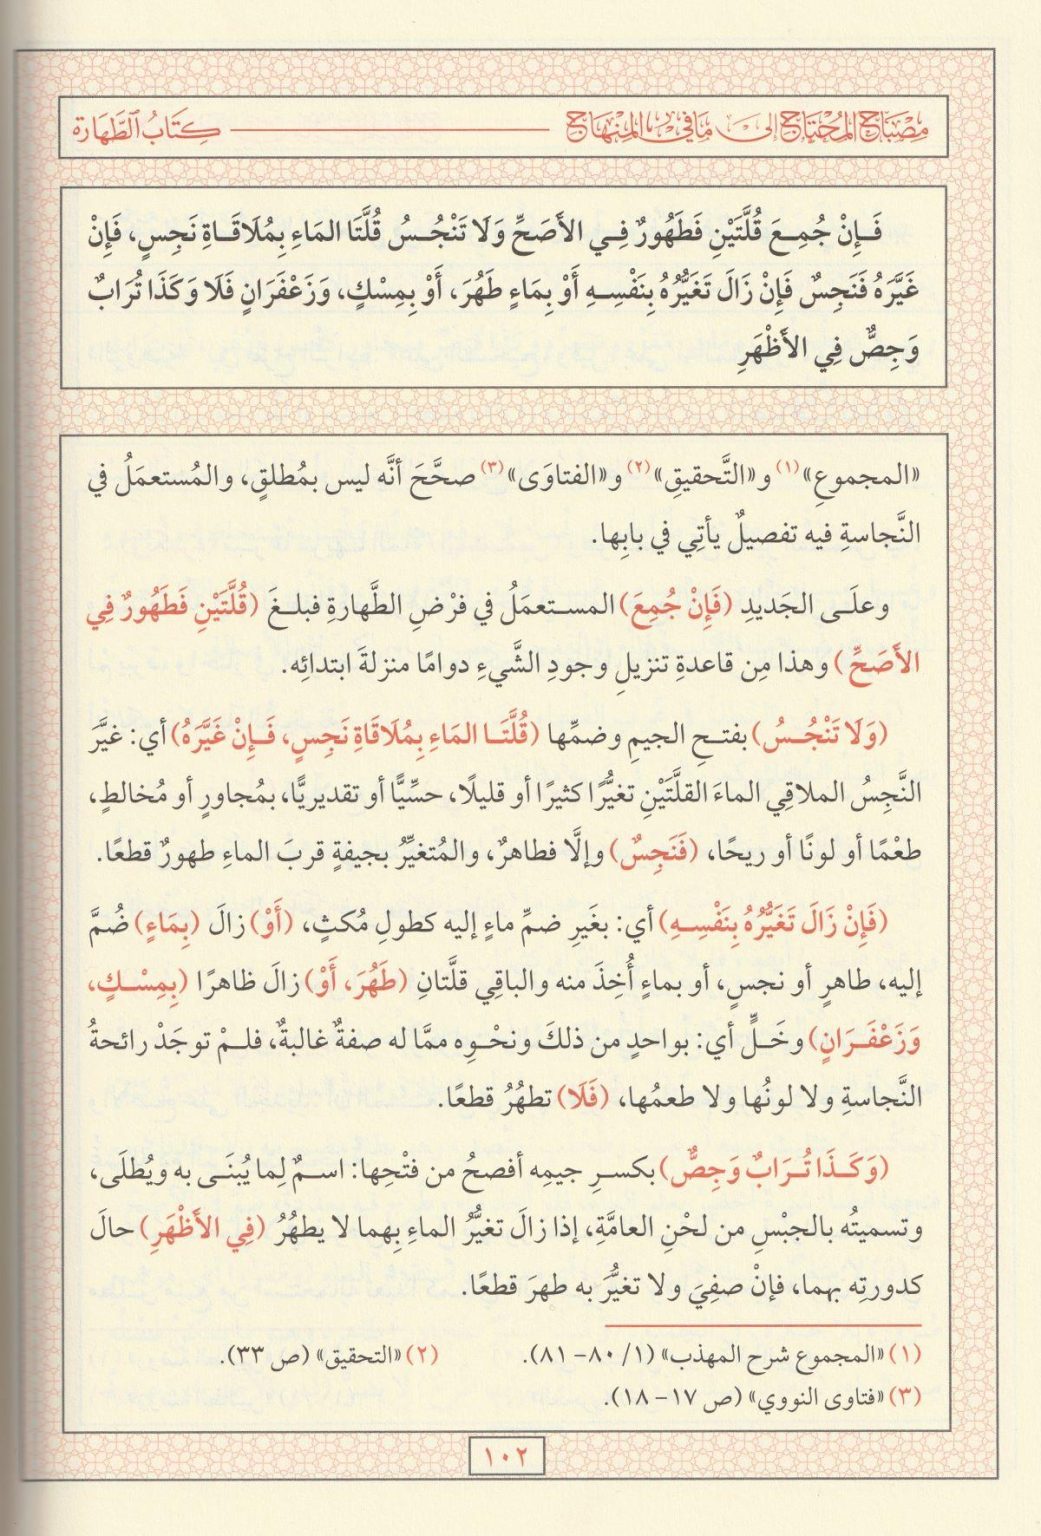 مِصْبَاحُ المُحْتَاجِ إِلَى مَا فِي المِنْهَاجِ كِتَابُ الطَّهَارَة
فَإِنْ جُمِعَ قُلَّتَيْنِ فَطَهُورٌ فِي الأَصَحِّ وَلَا تَنْجُسُ قُلَّتَا المَاءِ بِمُلَاقَاةِ نَجِسٍ، فَإِنْ
غَيَّرَهُ فَنَجِسٌ فَإِنْ زَالَ تَغَيُّرُهُ بِنَفْسِهِ أَوْ بِمَاءٍ طَهُرَ، أَوْ بِمِسْكٍ، وَزَعْفَرَانٍ فَلَا وَكَذَا تُرَابٌ
وَجِصٌّ فِي الأَظْهَرِ
«المجموعِ»(١) و«التَّحقيقِ»(٢) و«الفتاوَى»(٣) صحَّحَ أنَّه ليس بمُطلقٍ، والمُستعمَلُ في
النَّجاسةِ فيه تفصيلٌ يأتِي في بابِها.
وعلَى الجَديدِ (فَإِنْ جُمِعَ) المستعمَلُ في فرْضِ الطَّهارةِ فبلغَ (قُلَّتَيْنِ فَطَهُورٌ فِي
الأَصَحِّ) وهذا مِن قاعدةِ تنزيلِ وجودِ الشَّيءِ دوامًا منزلةَ ابتدائِه.
(وَلَا تَنْجُسُ) بفتحِ الجيمِ وضمِّها (قُلَّتَا المَاءِ بِمُلَاقَاةِ نَجِسٍ، فَإِنْ غَيَّرَهُ) أي: غيَّرَ
النَّجِسُ الملاقِي الماءَ القلَّتَيْنِ تغيُّرًا كثيرًا أو قليلًا، حسِّيًّا أو تقديريًّا، بمُجاورٍ أو مُخالطٍ،
طعْمًا أو لونًا أو ريحًا، (فَنَجِسٌ) وإلَّا فطاهرٌ، والمُتغيِّرُ بجيفةٍ قربَ الماءِ طهورٌ قطعًا.
(فَإِنْ زَالَ تَغَيُّرُهُ بِنَفْسِهِ) أي: بغَيرِ ضمِّ ماءٍ إليه كطولِ مُكثٍ، (أَوْ) زالَ (بِمَاءٍ) ضُمَّ
إليه، طاهرٍ أو نجسٍ، أو بماءٍ أُخِذَ منه والباقِي قلَّتانِ (طَهُرَ، أَوْ) زالَ ظاهرًا (بِمِسْكٍ،
وَزَعْفَرَانٍ) وخَلٍّ أي: بواحدٍ من ذلكَ ونحْوِه ممَّا له صفةٌ غالبةٌ، فلمْ توجَدْ رائحةُ
النَّجاسةِ ولا لونُها ولا طعمُها، (فَلَا) تطهُرُ قطعًا.
(وَكَذَا تُرَابٌ وَجِصٌّ) بكسرِ جيمِه أفصحُ من فتْحِها: اسمٌ لِما يُبنَى به ويُطلَى،
وتسميتُه بالجبْسِ من لحْنِ العامَّةِ، إذا زالَ تغيُّرُ الماءِ بِهما لا يطهُرُ (فِي الأَظْهَرِ) حالَ
كدورتِه بهما، فإنْ صفِيَ ولا تغيُّرَ به طهرَ قطعًا.
(١) «المجموع شرح المهذب» (١/ ٨٠-٨١). (٢) «التحقيق» (ص ٣٣).
(٣) «فتاوى النووي» (ص ١٧-١٨).
١٠٢